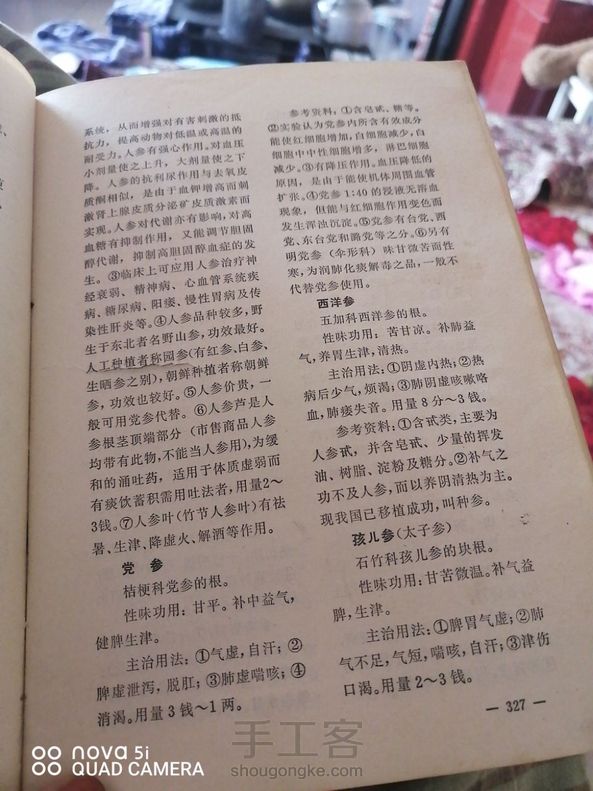 系统，从而增强对有害刺激的抵
抗力，提高动物对低温或高温的
耐受力。人参有强心作用。对血压
小剂量使之上升，大剂量使之下
降。人参的抗利尿作用与去氧皮
质酮相似，是由于血钾增高而刺
激肾上腺皮质分泌矿皮质激素而
实现。人参对代谢亦有影响，对高
血糖有抑制作用，又能调节胆固
醇代谢，抑制高胆固醇血症的发
生。③临床上可应用人参治疗神
经衰弱、精神病、心血管系统疾
病、糖尿病、阳痿、慢性胃病及传
染性肝炎等。④人参品种较多，野
生于东北者名野山参，功效最好。
人工种植者称园参(有红参、白参、
生晒参之别)，朝鲜种植者称朝鲜
参，功效也较好。⑤人参价贵，一
般可用党参代替。⑥人参芦是人
参根茎顶端部分（市售商品人参
均带有此物，不能当人参用)，为缓
和的涌吐药，适用于体质虚弱而
有痰饮蓄积需用吐法者，用量2～
3钱。⑦人参叶(竹节人参叶)有祛
暑、生津、降虚火、解酒等作用。
党参
桔梗科党参的根。
性味功用：甘平。补中益气，
健脾生津。
主治用法：①气虚，自汗；②
脾虚泄泻，脱肛；③肺虚喘咳；④
消渴。用量3钱～1两。
参考资料：①含皂甙、糖等。
②实验认为党参内所含有效成分
能使红细胞增加，白细胞减少，白
细胞中中性细胞增多，淋巴细胞
减少。③有降压作用。血压降低的
原因，是由于能使机体周围血管
扩张。④党参1:40的浸液无溶血
现象，但能与红细胞作用变色而
发生浑浊沉淀。⑤党参有台党、西
党、东台党和潞党等之分。⑥另有
明党参（伞形科）味甘微苦而性
寒，为润肺化痰解毒之品，一般不
代替党参使用。
西洋参
五加科西洋参的根。
性味功用：苦甘凉。补肺益
气，养胃生津，清热。
主治用法：①阴虚内热；②热
病后少气，烦渴；③肺阴虚咳嗽咯
血，肺痿失音。用量8分～3钱。
参考资料：①含甙类，主要为
人参甙，并含皂甙、少量的挥发
油、树脂、淀粉及糖分。②补气之
功不及人参，而以养阴清热为主。
现我国已移植成功，叫种参。
孩儿参(太子参)
石竹科孩儿参的块根。
性味功用：甘苦微温。补气益
脾，生津。
主治用法：①脾胃气虚；②肺
气不足，气短，喘咳，自汗；③津伤
口渴。用量2～3钱。
— 327 —
nova 5i
QUAD CAMERA
手工客
shougongke.com